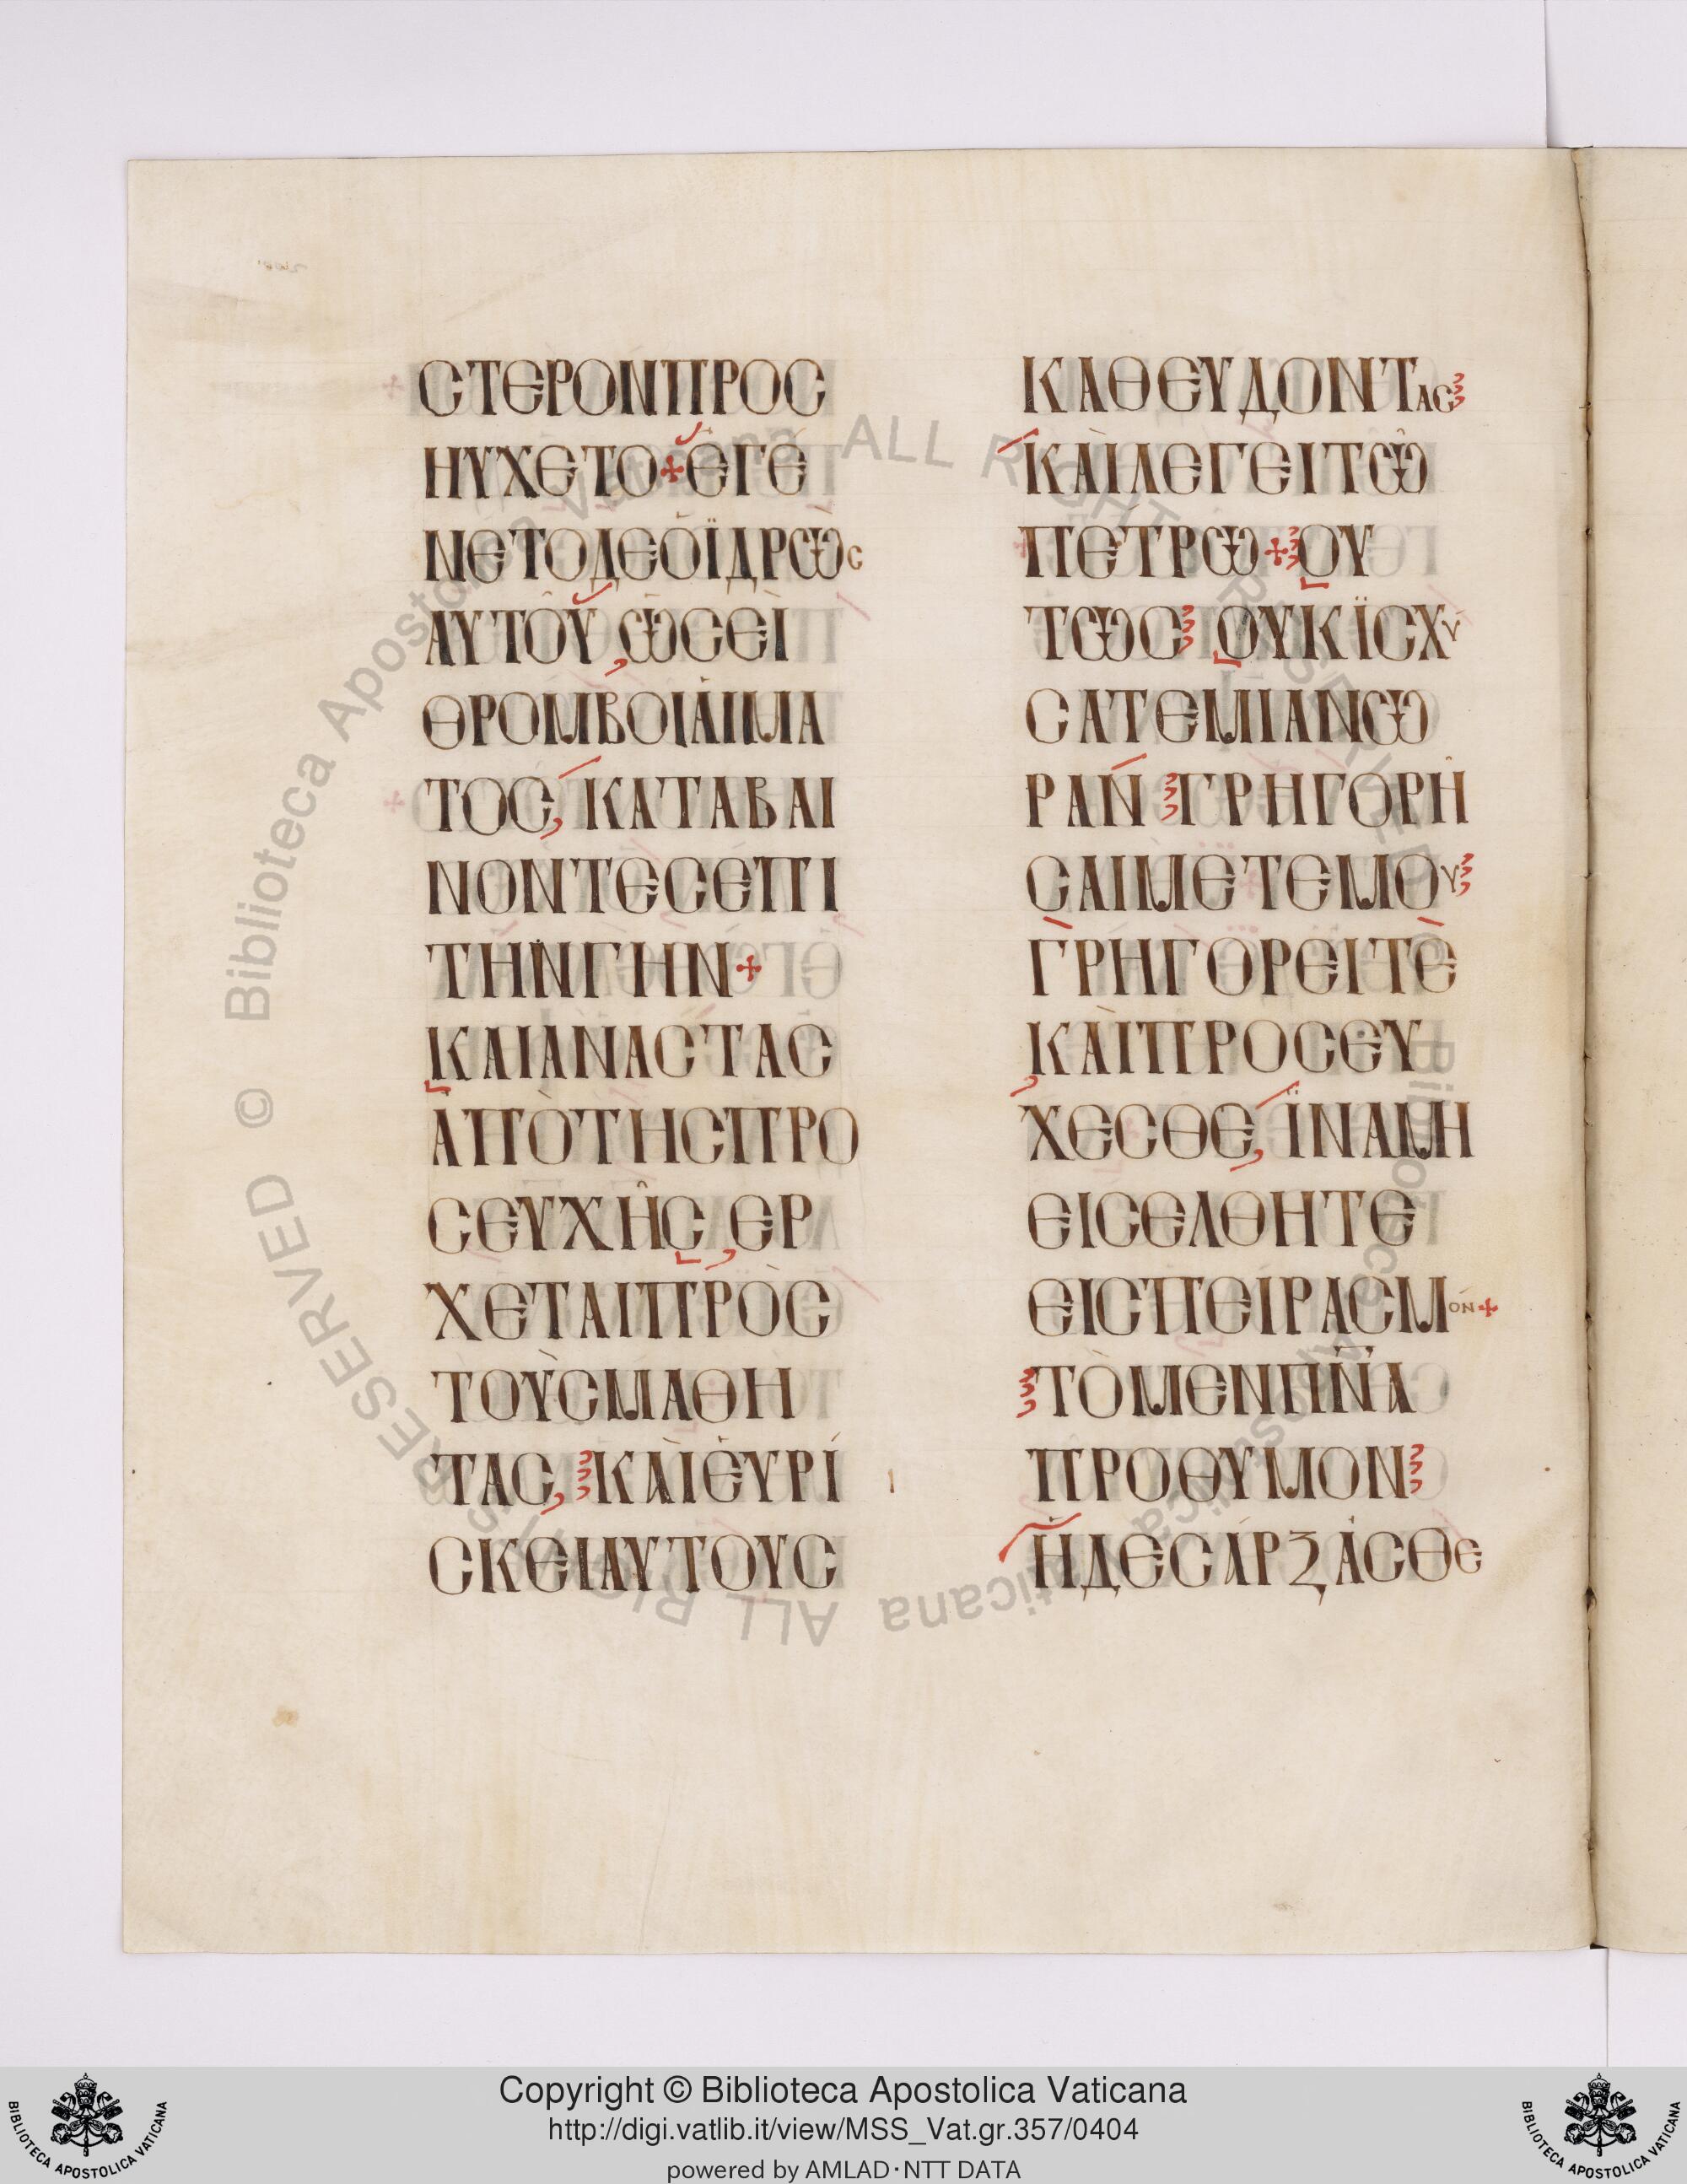 ϹΤΕΡΟΝΠΡΟϹ
ΗΥΧΕΤΟ+ἘΓΈ
ΝΕΤΟΔΕὉΪΔΡῺϹ
ΑΥΤΟΥ͂,ὩϹΕῚ
ΘΡΟΜΒΟΙἉΙΜΑ
ΤΟϹ,ΚΑΤΑΒΑΙ
ΝΟΝΤΕϹΕΠΙ
ΤΗΝΓΗΝ+
ΚΑΙἈΝΑϹΤΑϹ
ἈΠῸΤΗϹΠΡΟ
ϹΕΥΧΗ͂Ϲ,ΕΡ
ΧΕΤΑΙΠΡῸϹ
ΤΟῪϹΜΑΘΗ
ΤΑϹ,ΚΑῚἙΥΡΊ
ϹΚΕΙΑΥΤΟΥϹ
ΚΑΘΕΥΔΟΝΤΑϹ
ΚΑῚΛΕΓΕΙΤΩ͂
ΠΈΤΡΩ+ΟΥ
ΤΩϹΟΥΚΪϹΧΥ
ϹΑΤΕΜΙΑΝΩ
ΡΑΝΓΡΗΓΟΡΗ͂
ϹΑΙΜΕΤΕΜΟΥ
ΓΡΗΓΟΡΕΙΤΕ
ΚΑῚΠΡΟϹΕΥ
ΧΕϹΘΕ,ΪΝΑΜΗ
ΕΙϹΕΛΘΗΤΕ
ΕΙϹΠΕΙΡΑϹΜΌΝ+
ΤῸΜΕΝΠΝ̅Α
ΠΡΟΘΥΜΟΝ
ἩΔΕϹᾺΡΞἈϹΘΕ
Copyright © Biblioteca Apostolica Vaticana
http://digi.vatlib.it/view/MSS_Vat.gr.357/0404
powered by AMLAD·NTT DATA
BIBLIOTECA APOSTOLICA VATICANA
BIBLIOTECA APOSTOLICA VATICANA